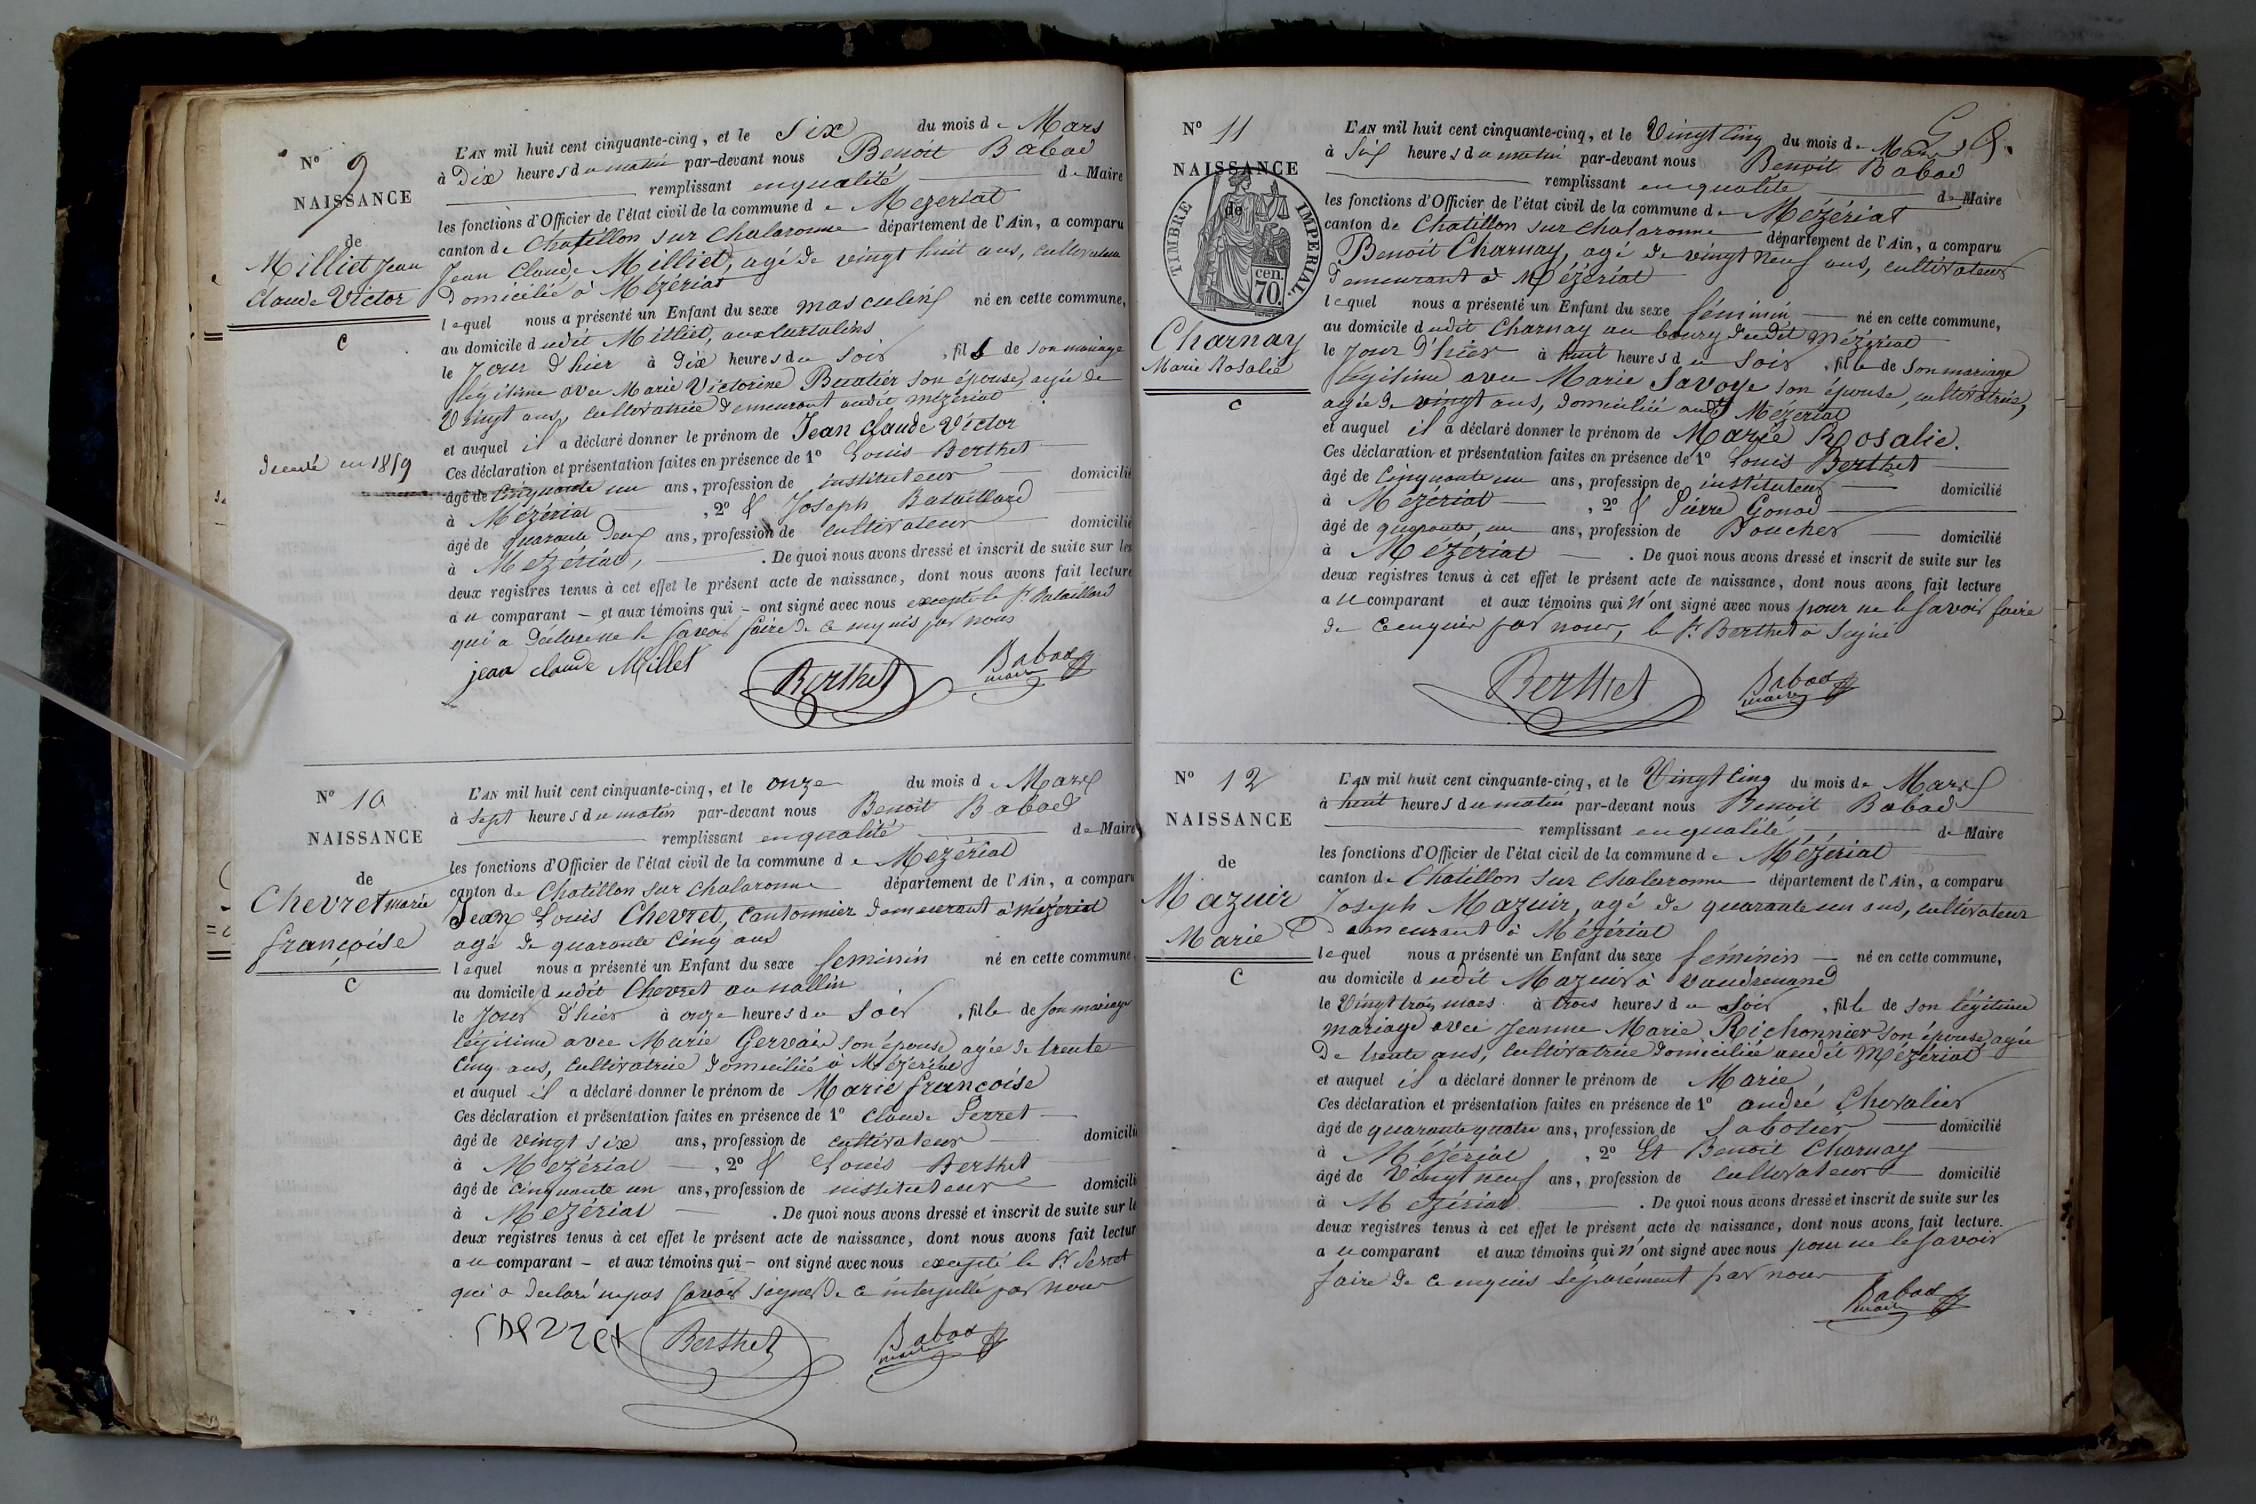 N° 9
NAISSANCE
de
Milliet Jean
Claude Victor
C
décédé en 1859
L'AN mil huit cent cinquante-cinq, et le Six du mois de Mars
à Dix heures du matin par-devant nous Benoit Babad
remplissant en qualité de Maire
les fonctions d'Officier de l'état civil de la commune de Mezeriat
canton de Chatillon sur Chalaronne département de l'Ain, a comparu
Jean Claude Milliet, agé de vingt huit ans, cultivateur
Domicilié à Mézériat
lequel nous a présenté un Enfant du sexe masculin né en cette commune,
au domicile dudit Milliet, aux
le Jour d'hier à Dix heures du soir, fils de son mariage
légitime avec Marie Victorine Buatier son épouse, agée de
Vingt ans, cultivatrice demeurant audit mézériat
et auquel il a déclaré donner le prénom de Jean Claude Victor
Ces déclaration et présentation faites en présence de 1° Louis Berthet
âgé de Cinquante un ans, profession de instituteur domicilié
à Mézériat, 2° & Joseph Bataillard
âgé de quarante Deux ans, profession de cultivateur domicilié
à Mézériat, . De quoi nous avons dressé et inscrit de suite sur les
deux registres tenus à cet effet le présent acte de naissance, dont nous avons fait lecture
au comparant - et aux témoins qui - ont signé avec nous excepté le Sr Bataillard
qui a déclaré ne le savoir faire de ce enquis par nous
jean claude Millet Berthet Babad
maire
N° 10
NAISSANCE
de
Chevret marie
françoise
C
L'AN mil huit cent cinquante-cinq, et le onze du mois de Mars
à Sept heures du matin par-devant nous Benoit Babad
remplissant en qualité de Maire
les fonctions d'Officier de l'état civil de la commune de Mezériat
canton de Chatillon sur Chalaronne département de l'Ain, a comparu
Jean Louis Chevret, Cantonnier demeurant à mézériat
agé de quarante Cinq ans
lequel nous a présenté un Enfant du sexe feminin né en cette commune,
au domicile dudit Chevret au
le Jour d'hier à onze heures du Soir, fille de son mariage
légitime avec Marie Gervais son épouse agée de trente
Cinq ans, Cultivatrice domiciliée à Mézériat
et auquel il a déclaré donner le prénom de Marie françoise
Ces déclaration et présentation faites en présence de 1° Claude Perret
âgé de vingt six ans, profession de cultivateur domicilié
à Mézériat, 2° & Louis Berthet
âgé de Cinquante un ans, profession de instituteur domicilié
à Mezériat . De quoi nous avons dressé et inscrit de suite sur les
deux registres tenus à cet effet le présent acte de naissance, dont nous avons fait lecture
au comparant - et aux témoins qui - ont signé avec nous excepté le Sr Perret
qui a déclaré ne pas savoir signer de ce interpellé par nous
Chevret Berthet Babad
maire
N° 11
NAISSANCE
de
TIMBRE IMPERIAL.
70. cen.
Charnay
Marie Rosalie
C
L'AN mil huit cent cinquante-cinq, et le Vingt Cinq du mois de Mars
à Six heures du matin par-devant nous Benoit Babad
remplissant en qualité de Maire
les fonctions d'Officier de l'état civil de la commune de Mézériat
canton de Chatillon sur chalaronne département de l'Ain, a comparu
Benoit Charnay, agé de vingt neuf ans, cultivateur
demeurant à Mézériat
lequel nous a présenté un Enfant du sexe féminin né en cette commune,
au domicile dudit Charnay au bourg dudit Mézériat
le Jour d'hier à huit heures du Soir, fille de son mariage
légitime avec Marie Savoye son épouse, cultivatrice,
agée de vingt ans, domiciliée audit Mézériat
et auquel il a déclaré donner le prénom de Marie Rosalie.
Ces déclaration et présentation faites en présence de 1° Louis Berthet
âgé de Cinquante un ans, profession de instituteur domicilié
à Mézériat, 2° & Pierre Gonod
âgé de quarante un ans, profession de Boucher domicilié
à Mézériat . De quoi nous avons dressé et inscrit de suite sur les
deux registres tenus à cet effet le présent acte de naissance, dont nous avons fait lecture
au comparant et aux témoins qui n'ont signé avec nous pour ne le savoir faire
de ce enquis par nous, le Sr Berthet a signé
Berthet Babad
maire
N° 12
NAISSANCE
de
Mazuir
Marie
C
L'AN mil huit cent cinquante-cinq, et le Vingt Cinq du mois de Mars
à huit heures du matin par-devant nous Benoit Babad
remplissant en qualité de Maire
les fonctions d'Officier de l'état civil de la commune de Mézériat
canton de Chatillon sur Chalaronne département de l'Ain, a comparu
Joseph Mazuir, agé de quarante un ans, cultivateur
Demeurant à Mézériat
lequel nous a présenté un Enfant du sexe féminin né en cette commune,
au domicile dudit Mazuir à Vaudrenand
le Vingt trois mars à trois heures du Soir, fille de son légitime
mariage avec Jeanne Marie Richonnier son épouse, agée
De trente ans, Cultivatrice domiciliée audit Mézériat
et auquel il a déclaré donner le prénom de Marie
Ces déclaration et présentation faites en présence de 1° andré Chevalier
âgé de quarante quatre ans, profession de Sabotier domicilié
à Mézériat, 2° Et Benoit Charnay
âgé de Vingt neuf ans, profession de Cultivateur domicilié
à Mézériat . De quoi nous avons dressé et inscrit de suite sur les
deux registres tenus à cet effet le présent acte de naissance, dont nous avons fait lecture.
au comparant et aux témoins qui n'ont signé avec nous pour ne le savoir
faire de ce enquis séparément par nous
Babad
maire